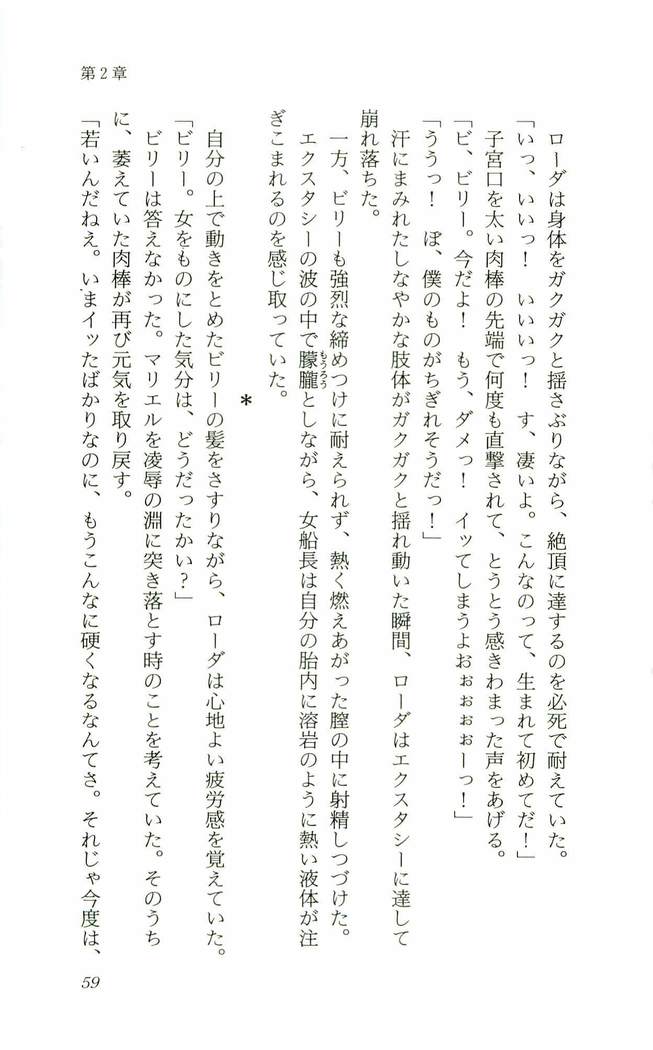 第2章
　ローダは身体をガクガクと揺さぶりながら、絶頂に達するのを必死で耐えていた。
「いっ、いいっ！　いいいっ！　す、凄いよ。こんなのって、生まれて初めてだ！」
　子宮口を太い肉棒の先端で何度も直撃されて、とうとう感きわまった声をあげる。
「ビ、ビリー。今だよ！　もう、ダメっ！　イッてしまうよおぉぉぉぉーっ！」
「ううっ！　ぼ、僕のものがちぎれそうだっ！」
　汗にまみれたしなやかな肢体がガクガクと揺れ動いた瞬間、ローダはエクスタシーに達して
崩れ落ちた。
　一方、ビリーも強烈な締めつけに耐えられず、熱く燃えあがった膣の中に射精しつづけた。
　エクスタシーの波の中で朦朧もうろうとしながら、女船長は自分の胎内に溶岩のように熱い液体が注
ぎこまれるのを感じ取っていた。
＊
　自分の上で動きをとめたビリーの髪をさすりながら、ローダは心地よい疲労感を覚えていた。
「ビリー。女をものにした気分は、どうだったかい？」
　ビリーは答えなかった。マリエルを凌辱の淵に突き落とす時のことを考えていた。そのうち
に、萎えていた肉棒が再び元気を取り戻す。
「若いんだねえ。いまイッたばかりなのに、もうこんなに硬くなるなんてさ。それじゃ今度は、
59